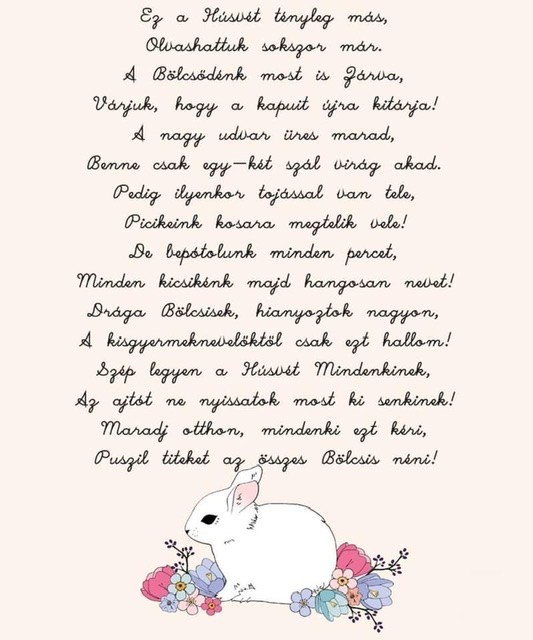 Ez a Húsvét tényleg más,
Olvashattuk sokszor már.
A Bölcsődénk most is Zárva,
Várjuk, hogy a kapuit újra kitárja!
A nagy udvar üres marad,
Benne csak egy-két szál virág akad.
Pedig ilyenkor tojással van tele,
Picikeink kosara megtelik vele!
De bepótolunk minden percet,
Minden kicsikénk majd hangosan nevet!
Drága Bölcsisek, hianyoztok nagyon,
A kisgyermeknevelőktől csak ezt hallom!
Szép legyen a Húsvét Mindenkinek,
Az ajtót ne nyissatok most ki senkinek!
Maradj otthon, mindenki ezt kéri,
Puszil titeket az összes Bölcsis néni!